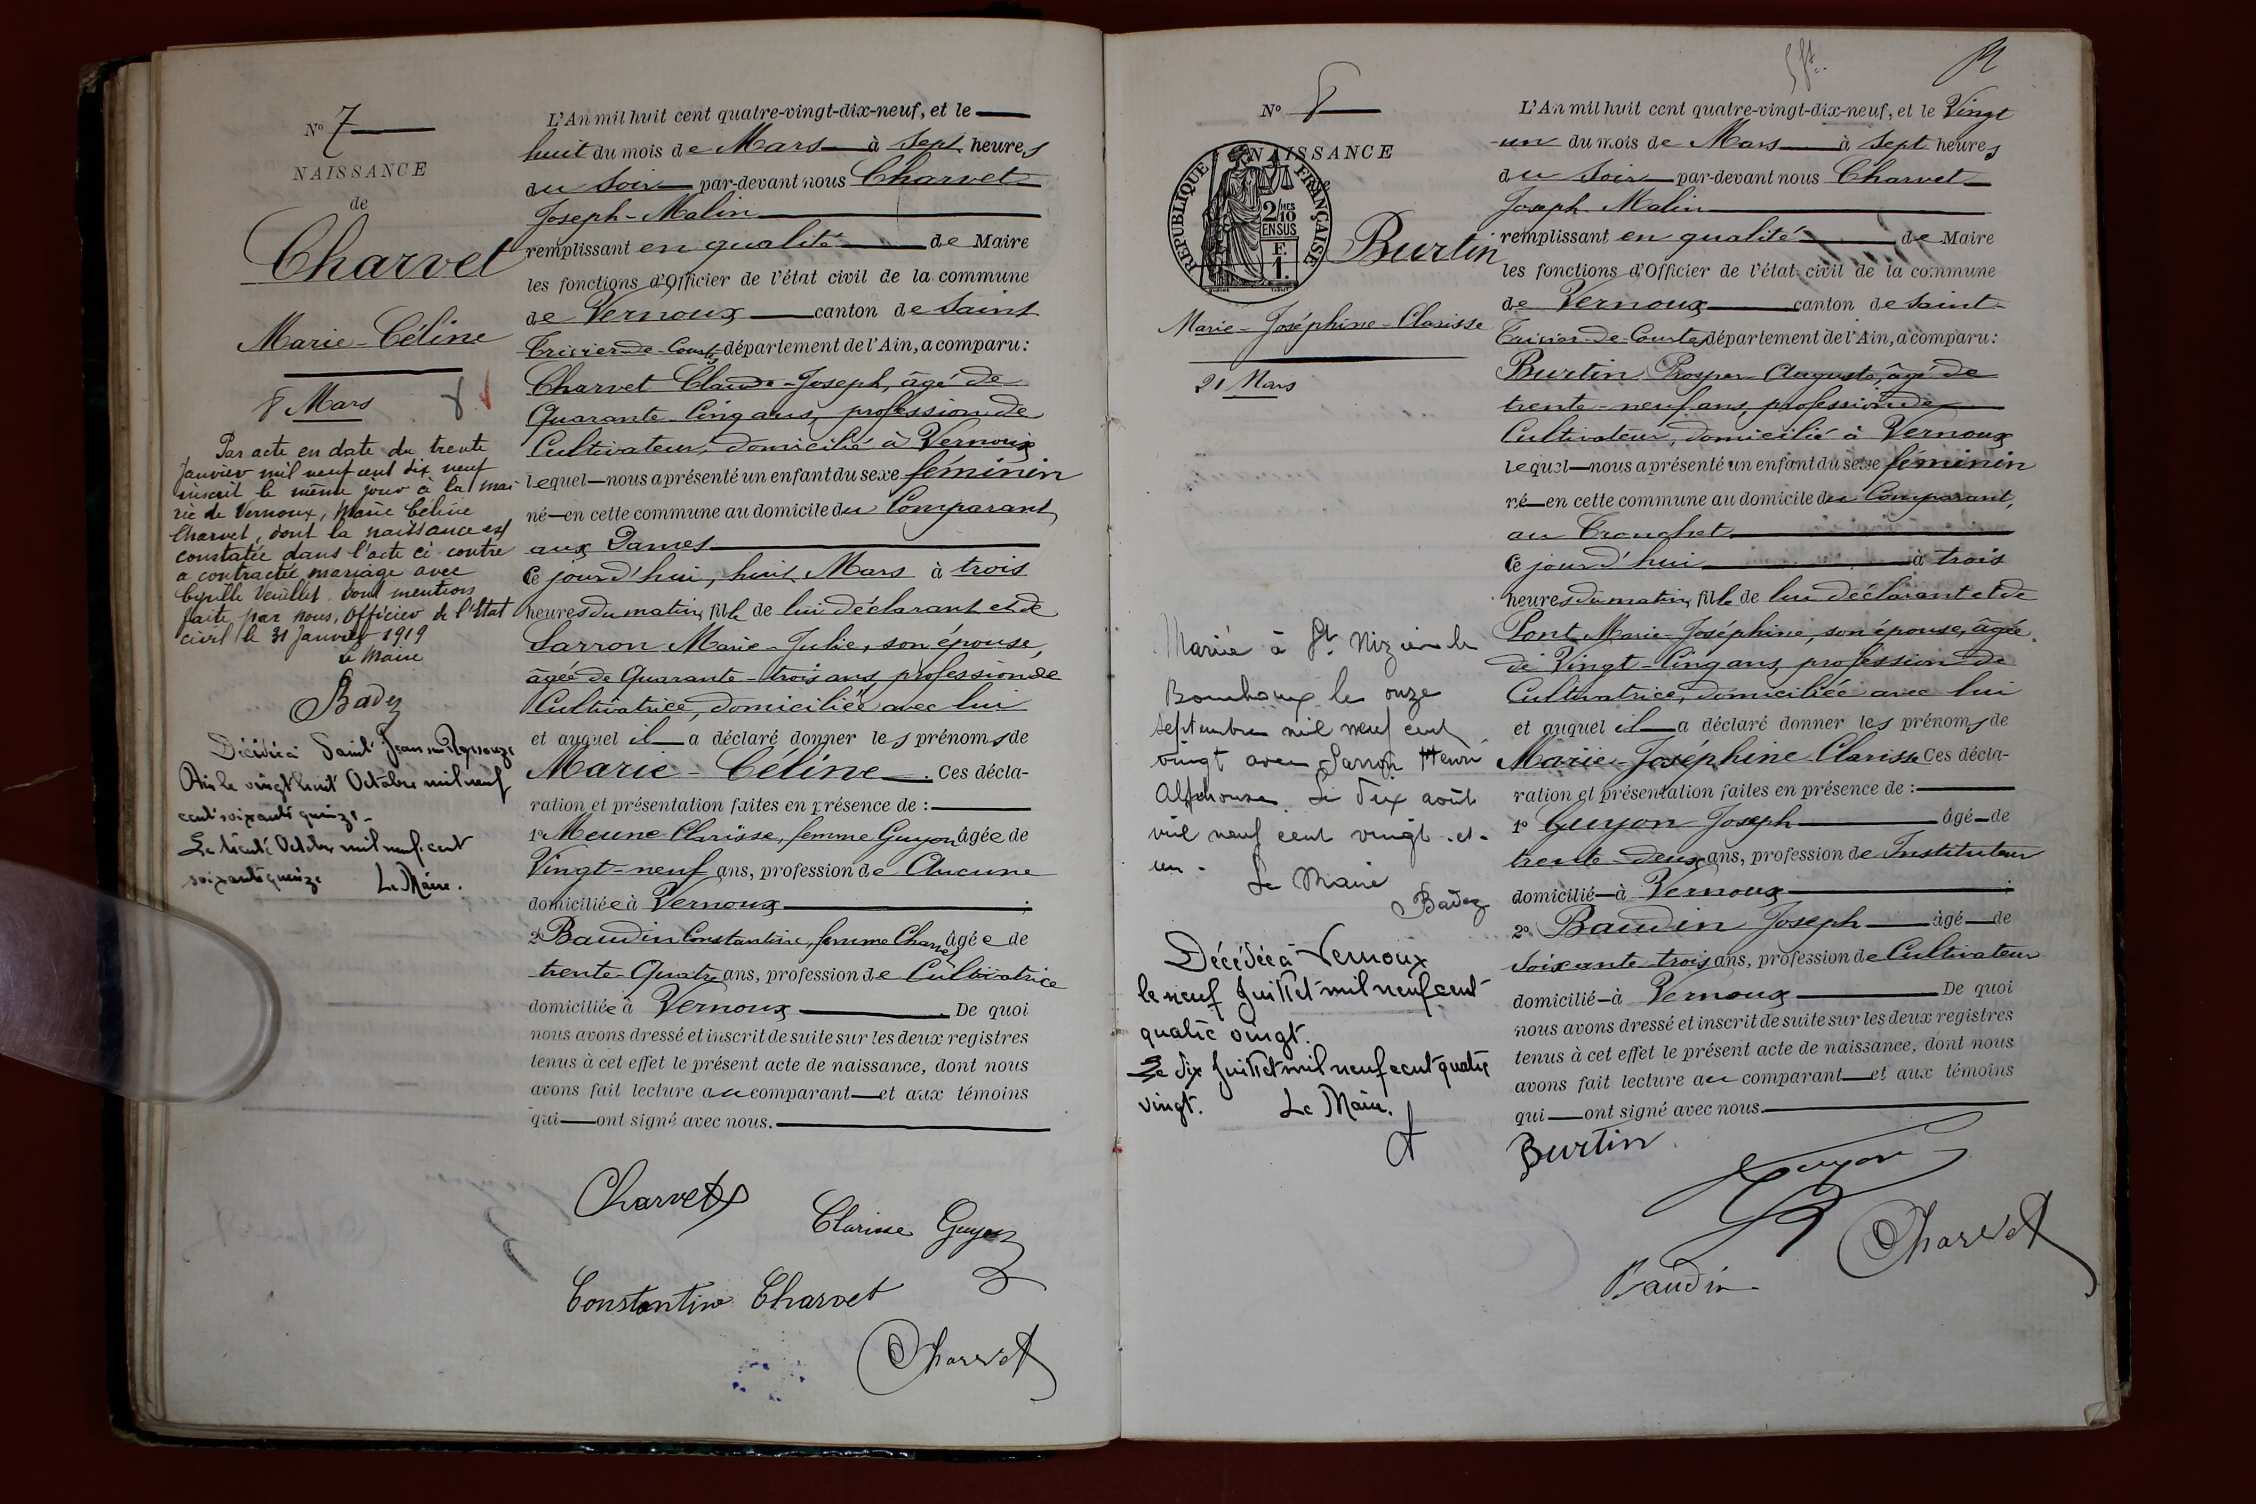 N° 7
NAISSANCE
de
Charvet
Marie-Céline
8 Mars
Par acte en date du trente
Janvier mil neuf cent dix neuf
inscrit le même jour à la mai
rie de Vernoux, Marie Céline
Charvet, dont la naissance est
constatée dans l'acte ci-contre
a contracté mariage avec
Cyrille Veuillet. Dont mention
faite par nous, Officier de l'Etat
civil le 31 Janvier 1919
Le Maire
Badez
Décédée à Saint Jean sur Reyssouze
Ain le vingt huit Octobre mil neuf
cent soixante quinze
Le trente Octobre mil neuf cent
soixante quinze Le Maire.
L'An mil huit cent quatre-vingt-dix-neuf, et le
huit du mois de Mars à sept heures
du Soir par-devant nous Charvet
Joseph-Malin
remplissant en qualité de Maire
les fonctions d'Officier de l'état civil de la commune
de Vernoux canton de Saint
Trivier-de-Courtes département de l'Ain, a comparu:
Charvet Claude-Joseph, âgé de
Quarante-Cinq ans, profession de
Cultivateur, domicilié à Vernoux
lequel nous a présenté un enfant du sexe féminin
né en cette commune au domicile du Comparant,
aux Dames
Ce jourd'hui, huit Mars à trois
heures du matin, fille de lui déclarant et de
Sarron Marie-Julie, son épouse,
âgée de Quarante-trois ans, profession de
Cultivatrice, domiciliée avec lui
et auquel il a déclaré donner les prénoms de
Marie-Céline. Ces décla-
ration et présentation faites en présence de :
1° Meune Clarisse, femme Guyon âgée de
Vingt-neuf ans, profession de Aucune
domiciliée à Vernoux ;
2° Baudin Constantine, femme Charvet âgée de
trente-Quatre ans, profession de Cultivatrice
domiciliée à Vernoux. De quoi
nous avons dressé et inscrit de suite sur les deux registres
tenus à cet effet le présent acte de naissance, dont nous
avons fait lecture au comparant et aux témoins
qui ont signé avec nous.
Charvet
Clarisse Guyon
Constantine Charvet
Charvet
N° 8
NAISSANCE
RÉPUBLIQUE FRANÇAISE
2/10
EN SUS
F.
1.
Burtin
Marie-Joséphine-Clarisse
21 Mars
Mariée à St Nizier le
Bouchoux le onze
septembre mil neuf cent
vingt avec Sarron Henri
Alphonse. Le dix août
mil neuf cent vingt-et-
un.
Le Maire
Badez
Décédée à Vernoux
le neuf Juillet mil neuf cent
quatre vingt.
Le dix Juillet mil neuf cent quatre
vingt. Le Maire.
L'An mil huit cent quatre-vingt-dix-neuf, et le Vingt
un du mois de Mars à sept heures
du Soir par-devant nous Charvet
Joseph-Malin
remplissant en qualité de Maire
les fonctions d'Officier de l'état civil de la commune
de Vernoux canton de Saint-
Trivier-de-Courtes département de l'Ain, a comparu:
Burtin Prosper Auguste, âgé de
trente-neuf ans, profession de
Cultivateur, domicilié à Vernoux
lequel nous a présenté un enfant du sexe féminin
né en cette commune au domicile du Comparant,
au Tronchet
Ce jourd'hui à trois
heures du matin, fille de lui déclarant et de
Pont Marie-Joséphine, son épouse, âgée
de Vingt-Cinq ans, profession de
Cultivatrice, domiciliée avec lui
et auquel il a déclaré donner les prénoms de
Marie-Joséphine Clarisse Ces décla-
ration et présentation faites en présence de :
1° Guyon Joseph âgé de
trente-deux ans, profession de Instituteur
domicilié à Vernoux ;
2° Baudin Joseph âgé de
Soixante-trois ans, profession de Cultivateur
domicilié à Vernoux De quoi
nous avons dressé et inscrit de suite sur les deux registres
tenus à cet effet le présent acte de naissance, dont nous
avons fait lecture au comparant et aux témoins
qui ont signé avec nous.
Burtin
Guyon
Baudin
Charvet